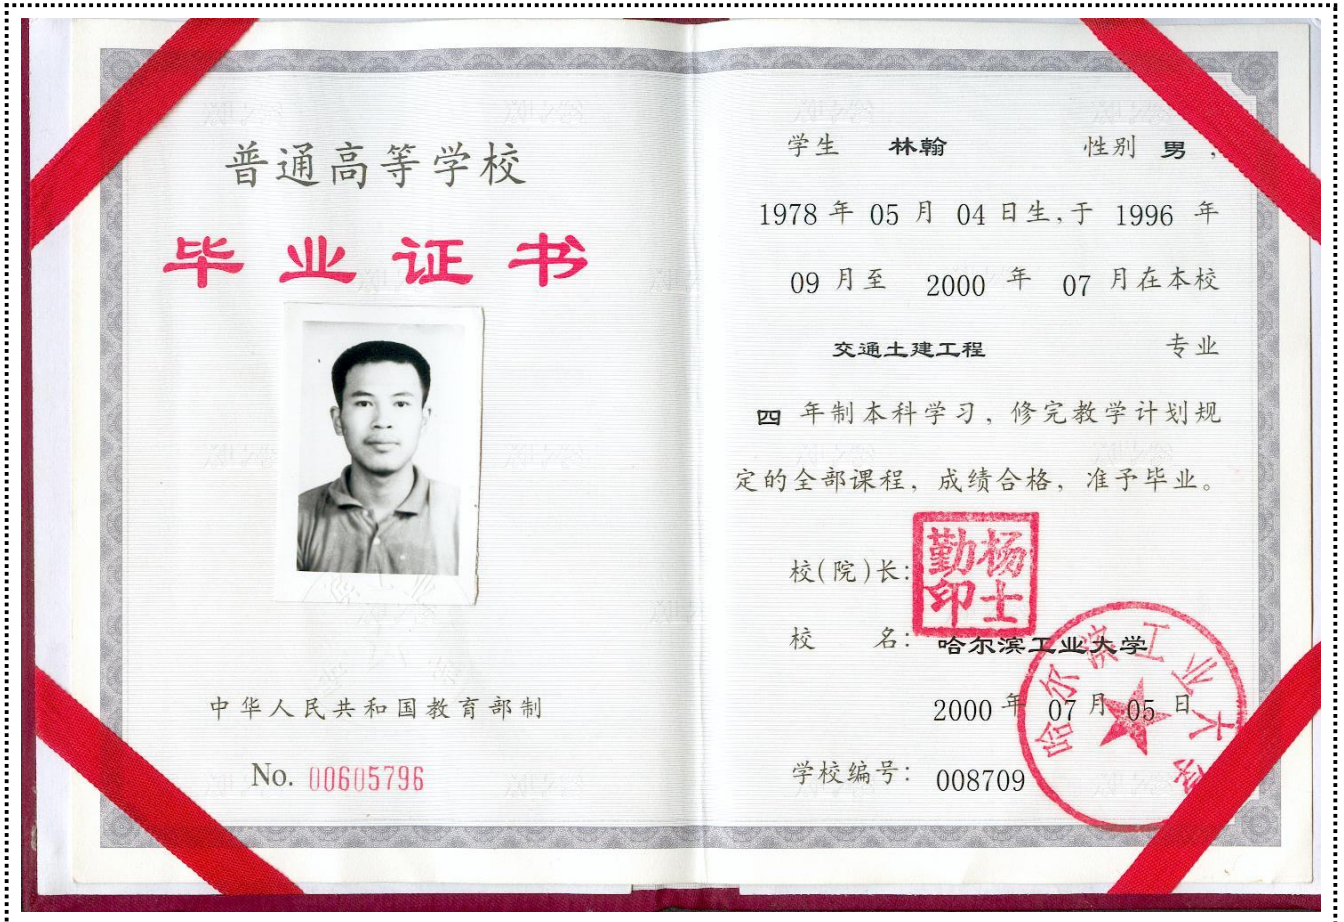 普通高等学校
毕业证书
中华人民共和国教育部制
No. 00605796
学生 林翰 性别 男,
1978 年 05 月 04 日生,于 1996 年
09 月至 2000 年 07 月在本校
交通土建工程 专业
四 年制本科学习，修完教学计划规
定的全部课程，成绩合格，准予毕业。
校(院)长:
杨士勤印
校 名: 哈尔滨工业大学
哈尔滨工业大学
2000 年 07 月 05 日
学校编号: 008709